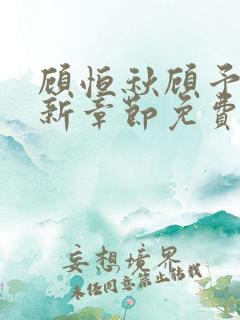 顾恒秋顾予
新章节免费
妄想境界
未经同意禁止转载